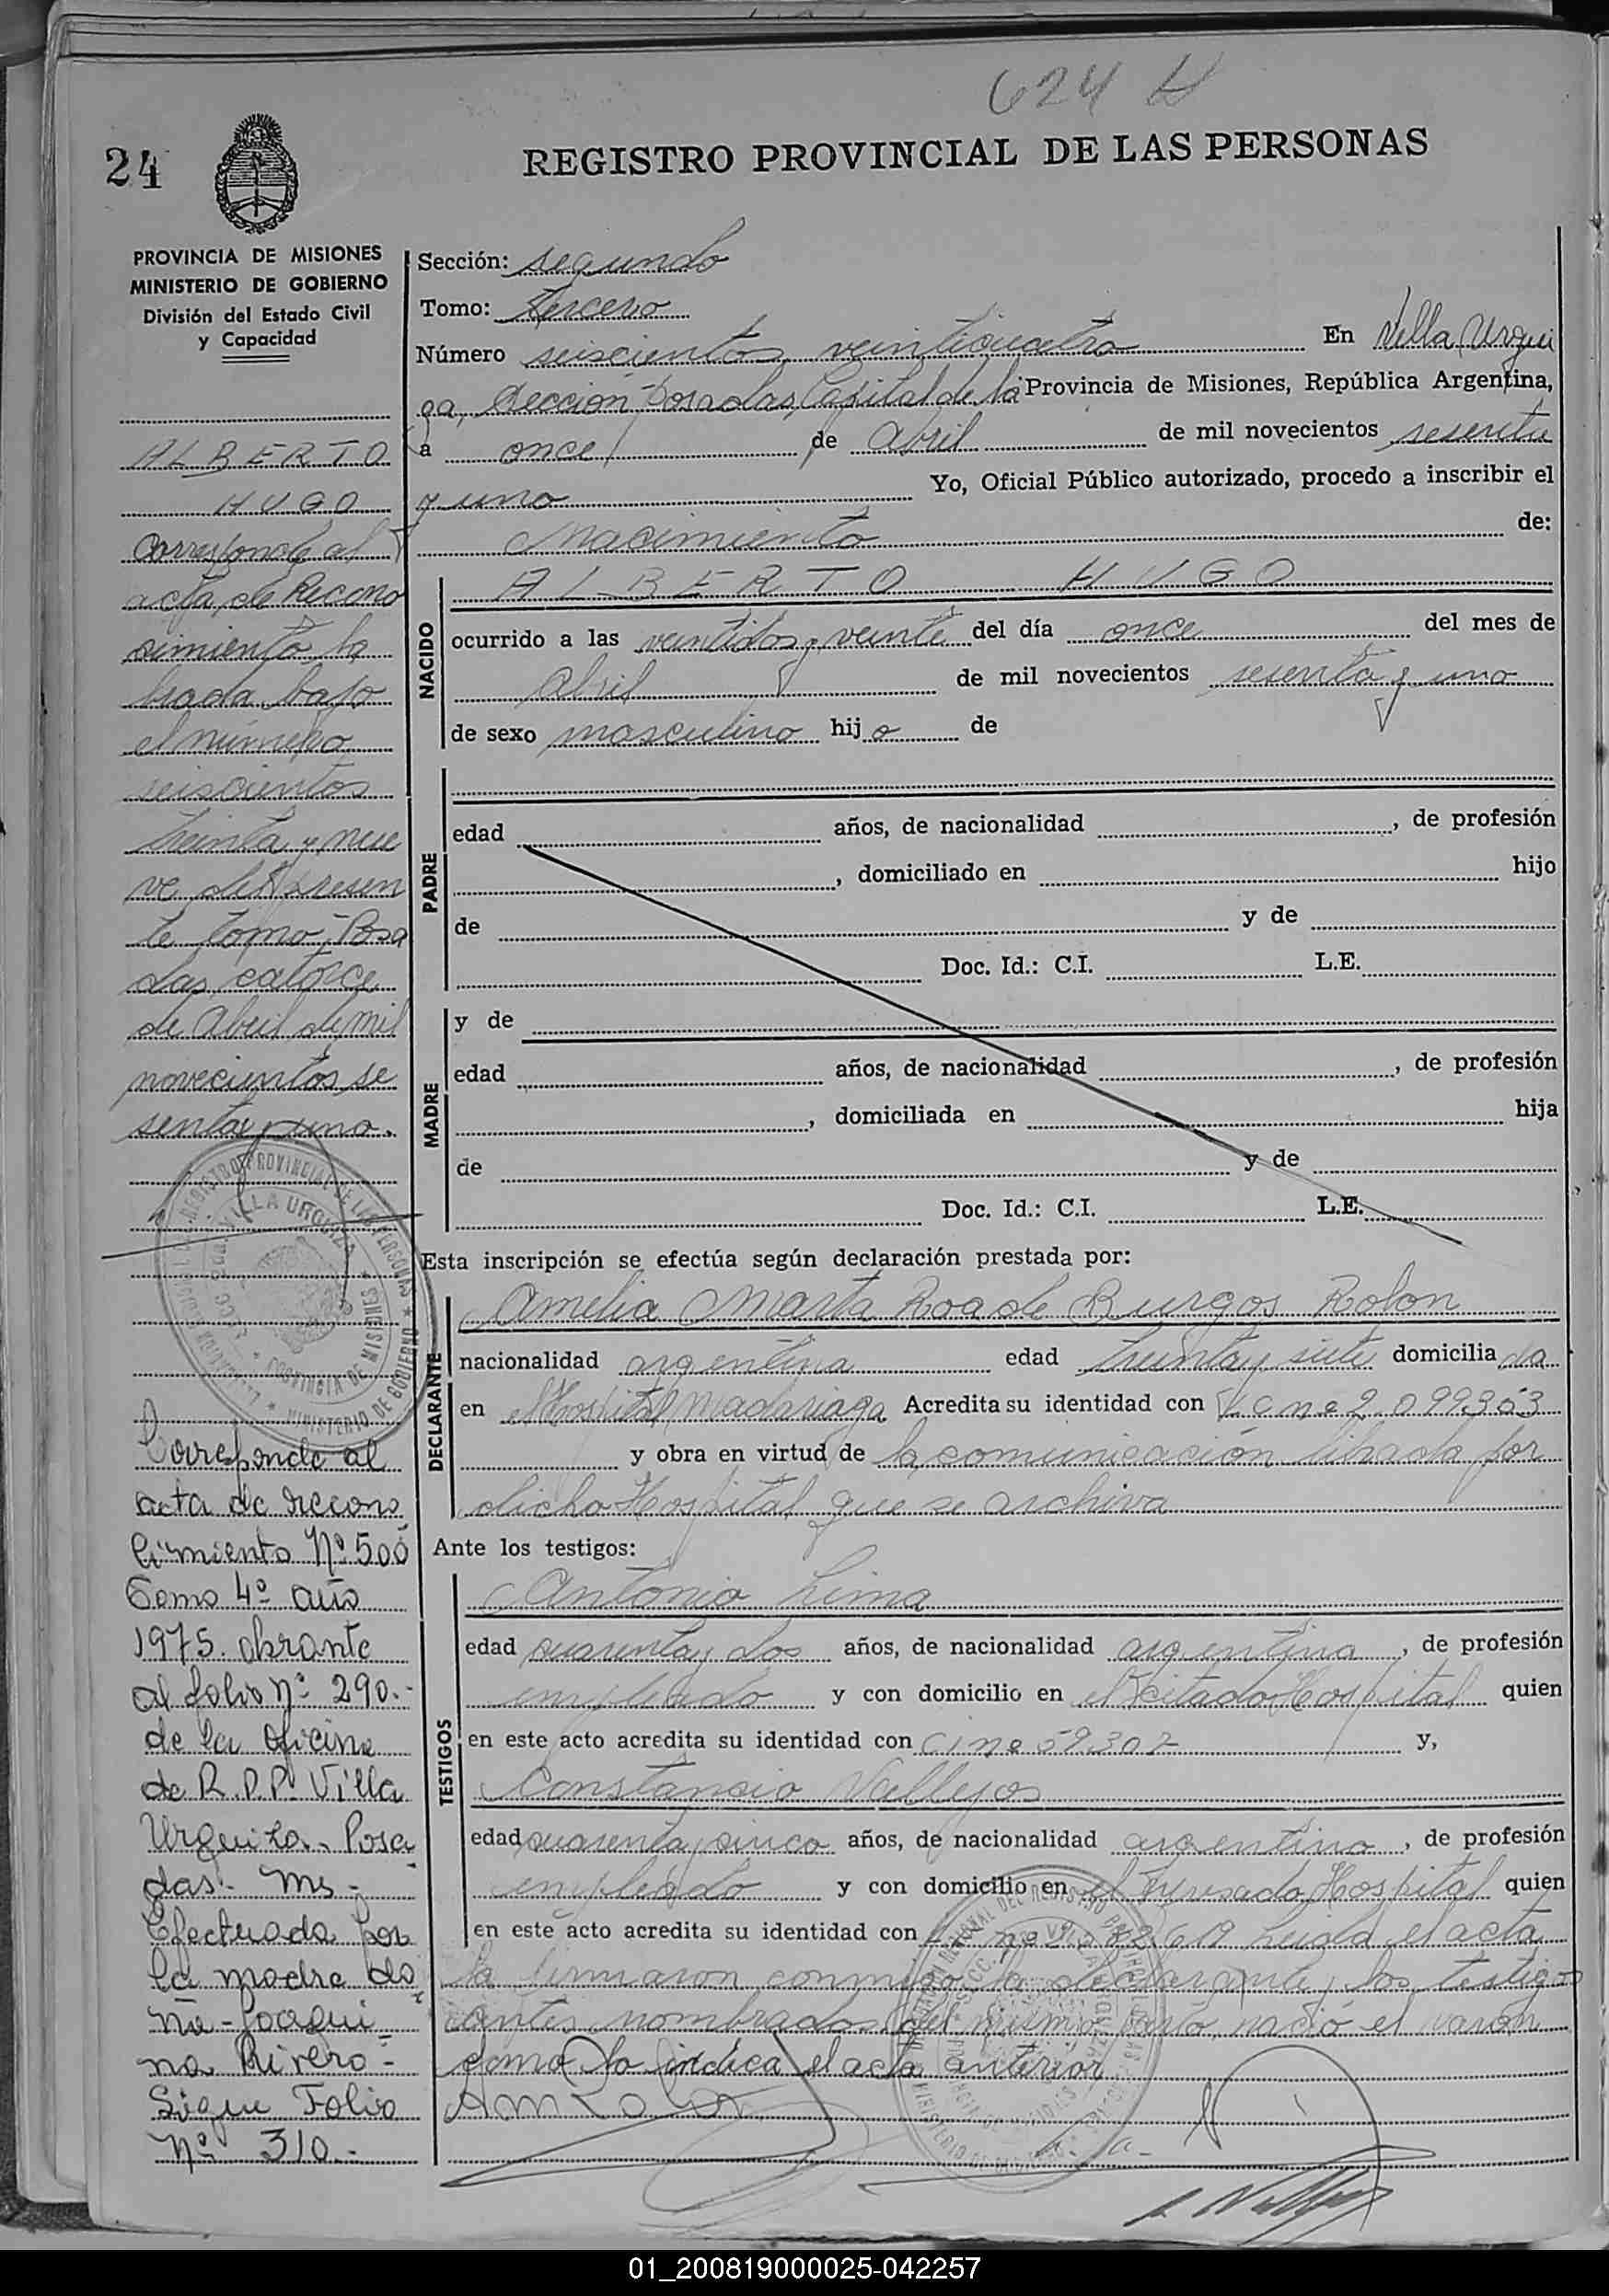 624
24
REGISTRO PROVINCIAL DE LAS PERSONAS
PROVINCIA DE MISIONES
MINISTERIO DE GOBIERNO
División del Estado Civil
y Capacidad
ALBERTO
HUGO
Corresponde al
acta de Recono
cimiento la
brada bajo
el número
seiscientos
treinta y nue
ve del presen
te tomo, Posa
das, catorce
de Abril de mil
novecientos se
senta y uno.
REGISTRO PROVINCIAL DE LAS PERSONAS
VILLA URQUIZA
PROVINCIA DE MISIONES
MINISTERIO DE GOBIERNO
Corresponde al
acta de recono
cimiento Nº 500
Tomo 4º año
1975. obrante
al folio nº 290.-
de la oficina
de R.P.P. Villa
Urquiza - Posa
das - Ms -
Efectuada por
la madre do
ña - Joaqui
na Rivero -
Sigue Folio
nº 310.-
Sección: segundo
Tomo: tercero
Número seiscientos veinticuatro En Villa Urqui
za, Sección Posadas, Capital de la Provincia de Misiones, República Argentina,
a once de Abril de mil novecientos sesenta
y uno Yo, Oficial Público autorizado, procedo a inscribir el
Nacimiento de:
NACIDO
ALBERTO HUGO
ocurrido a las veintidos y veinte del día once del mes de
Abril de mil novecientos sesenta y uno
de sexo masculino hijo de
PADRE
edad años, de nacionalidad , de profesión
, domiciliado en hijo
de y de
Doc. Id.: C.I. L.E.
MADRE
y de
edad años, de nacionalidad , de profesión
, domiciliada en hija
de y de
Doc. Id.: C.I. L.E.
Esta inscripción se efectúa según declaración prestada por:
DECLARANTE
Amelia Marta Roa de Burgos Rolon
nacionalidad argentina edad treinta y siete domiciliada
en el Hospital Madariaga Acredita su identidad con
y obra en virtud de la comunicación librada por
dicho Hospital que se archiva
Ante los testigos:
TESTIGOS
Antonio Lima
edad cuarenta y dos años, de nacionalidad argentina, de profesión
empleado y con domicilio en el citado Hospital quien
en este acto acredita su identidad con y,
Constancio Vallejos
edad cuarenta y cinco años, de nacionalidad argentino, de profesión
empleado y con domicilio en el expresado Hospital quien
en este acto acredita su identidad con Leida el acta
la firmaron conmigo la declarante y los testigos
antes nombrados del mismo parto nació el varón
como lo indica el acta anterior
01_200819000025-042257